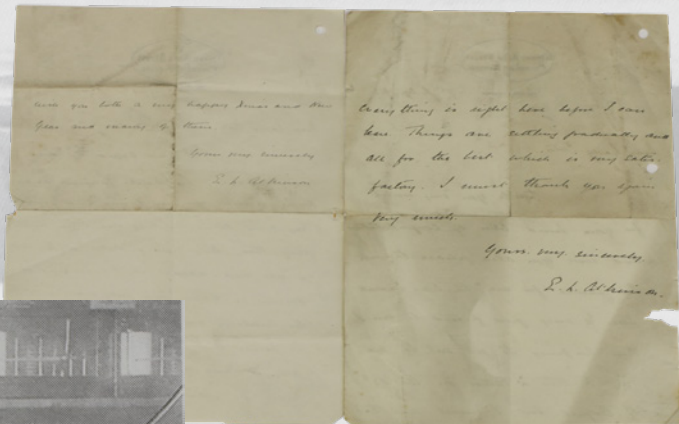 wish you both a very happy Xmas and New
Year and many of them
Yours very sincerely
E. L. Atkinson
everything is right here before I can
leave. Things are settling gradually and
all for the best which is very satis-
factory. I must thank you again
very much.
Yours very sincerely
E. L. Atkinson.